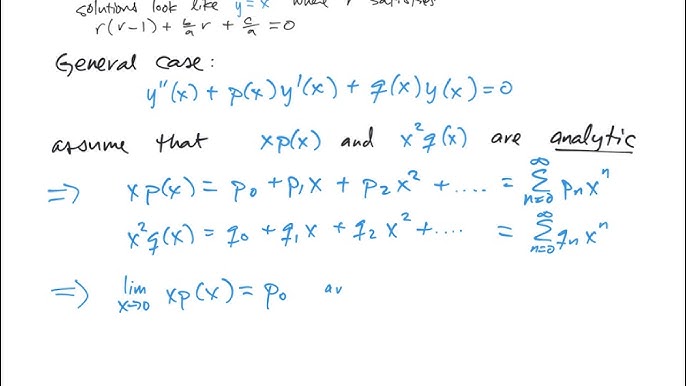 solutions look like y = x where r satisfies
r(r-1) + b/a r + c/a = 0
General case:
y''(x) + p(x)y'(x) + q(x)y(x) = 0
assume that xp(x) and x²q(x) are analytic
⇒ xp(x) = p₀ + p₁x + p₂x² + .... = ∑_{n=0}^{∞} pₙxⁿ
x²q(x) = q₀ + q₁x + q₂x² + .... = ∑_{n=0}^{∞} qₙxⁿ
⇒ lim_{x→0} xp(x) = p₀